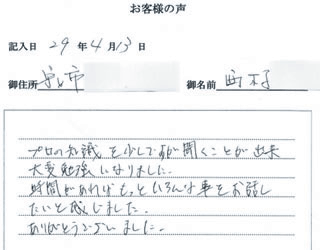 お客様の声
記入日 29年4月13日
御住所 市
御名前
プロの知識を少しでも聞くことが出来
大変勉強になりました。
時間があればもっといろんな事をお話し
たいと感じました。
ありがとうございました。